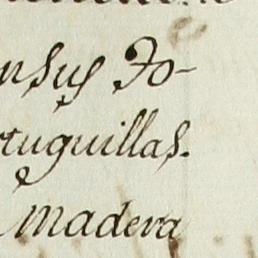 nsus To-
rtuguillas.
madera